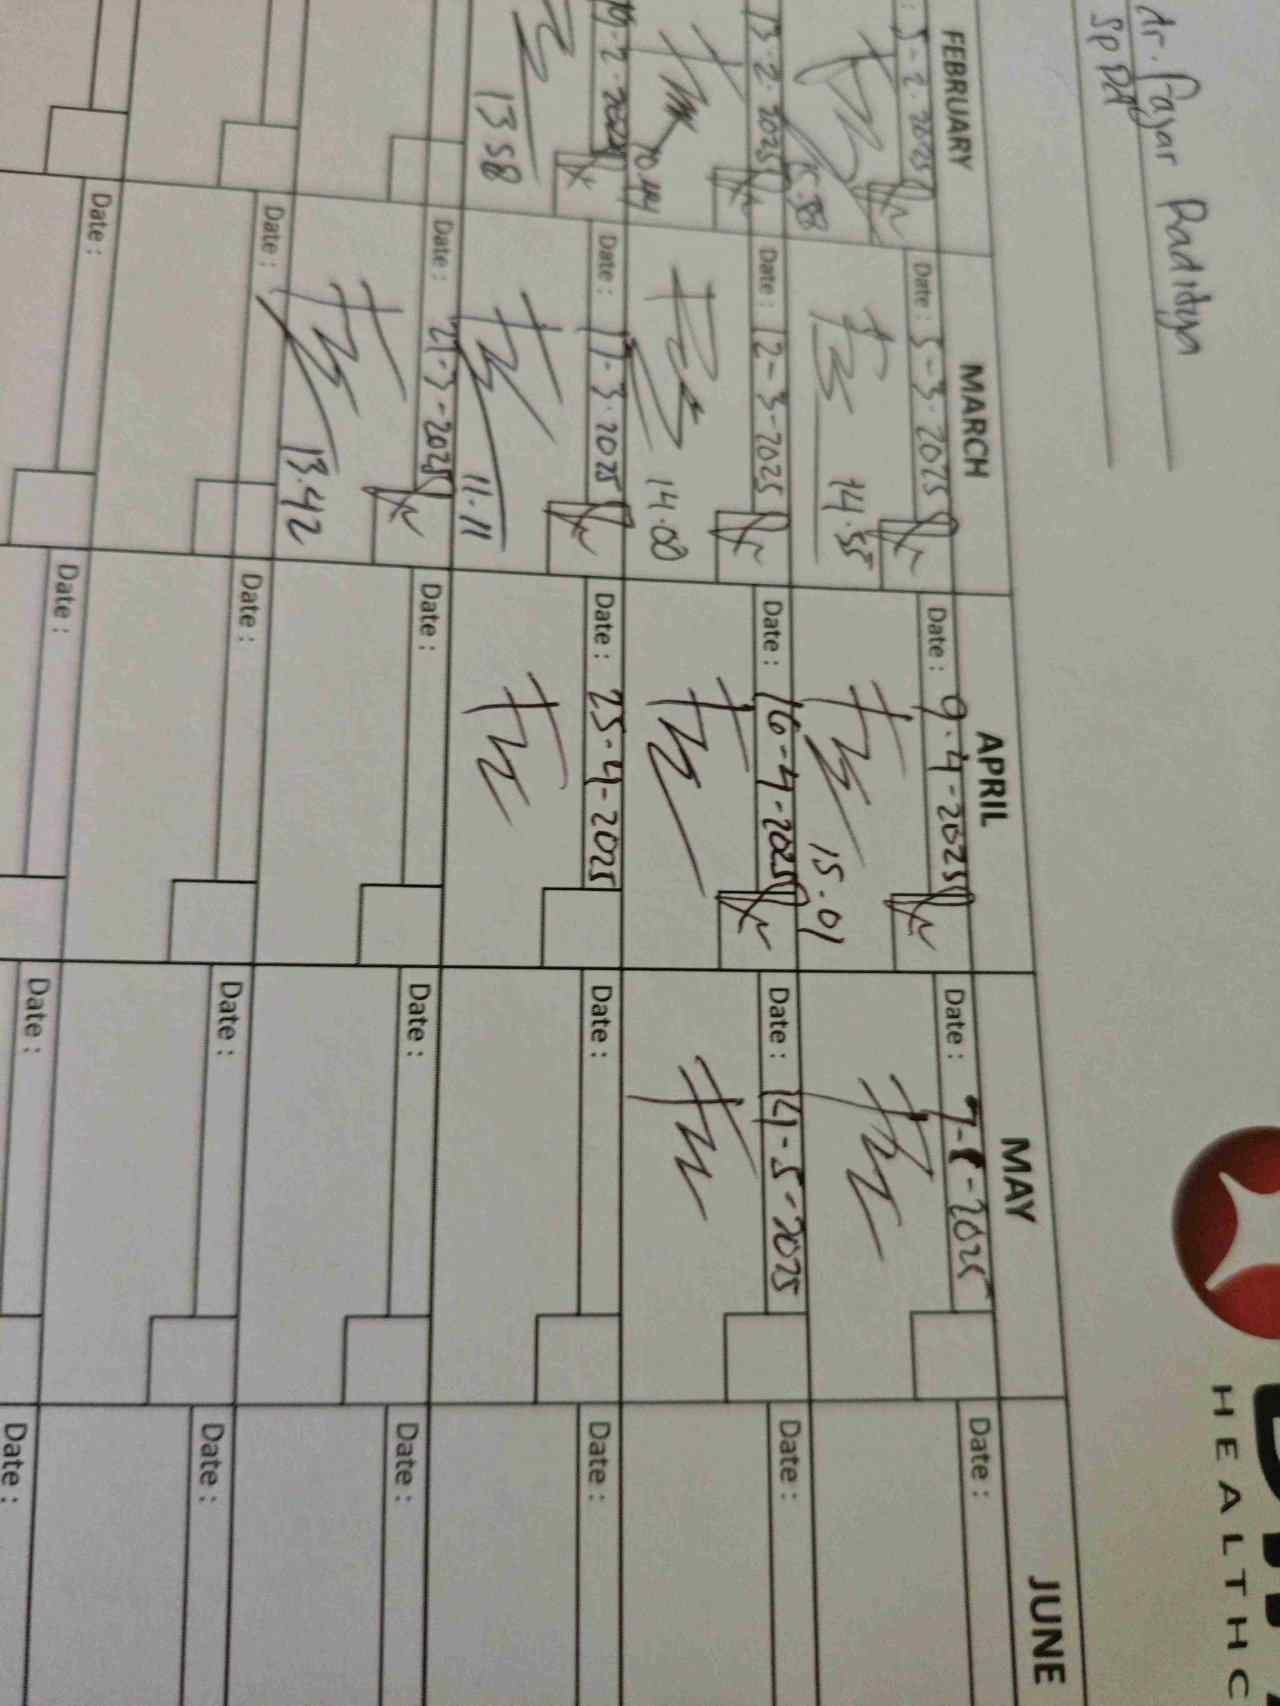 dr. Fajar Raditya
Sp PD
HEALTHC
FEBRUARY MARCH APRIL MAY JUNE
: 5-2-2025 Date : 5-3-2025 Date : 9-4-2025 Date : 7-5-2025 Date :
14.55 15.01
13-2-2025 Date : 12-3-2025 Date : 16-4-2025 Date : 14-5-2025 Date :
14.00
19-2-2025 Date : 17-3-2025 Date : 25-4-2025 Date : Date :
13 58 11-11
Date : 21-3-2025 Date : Date : Date :
13.42
Date : Date : Date : Date :
Date : Date : Date : Date :